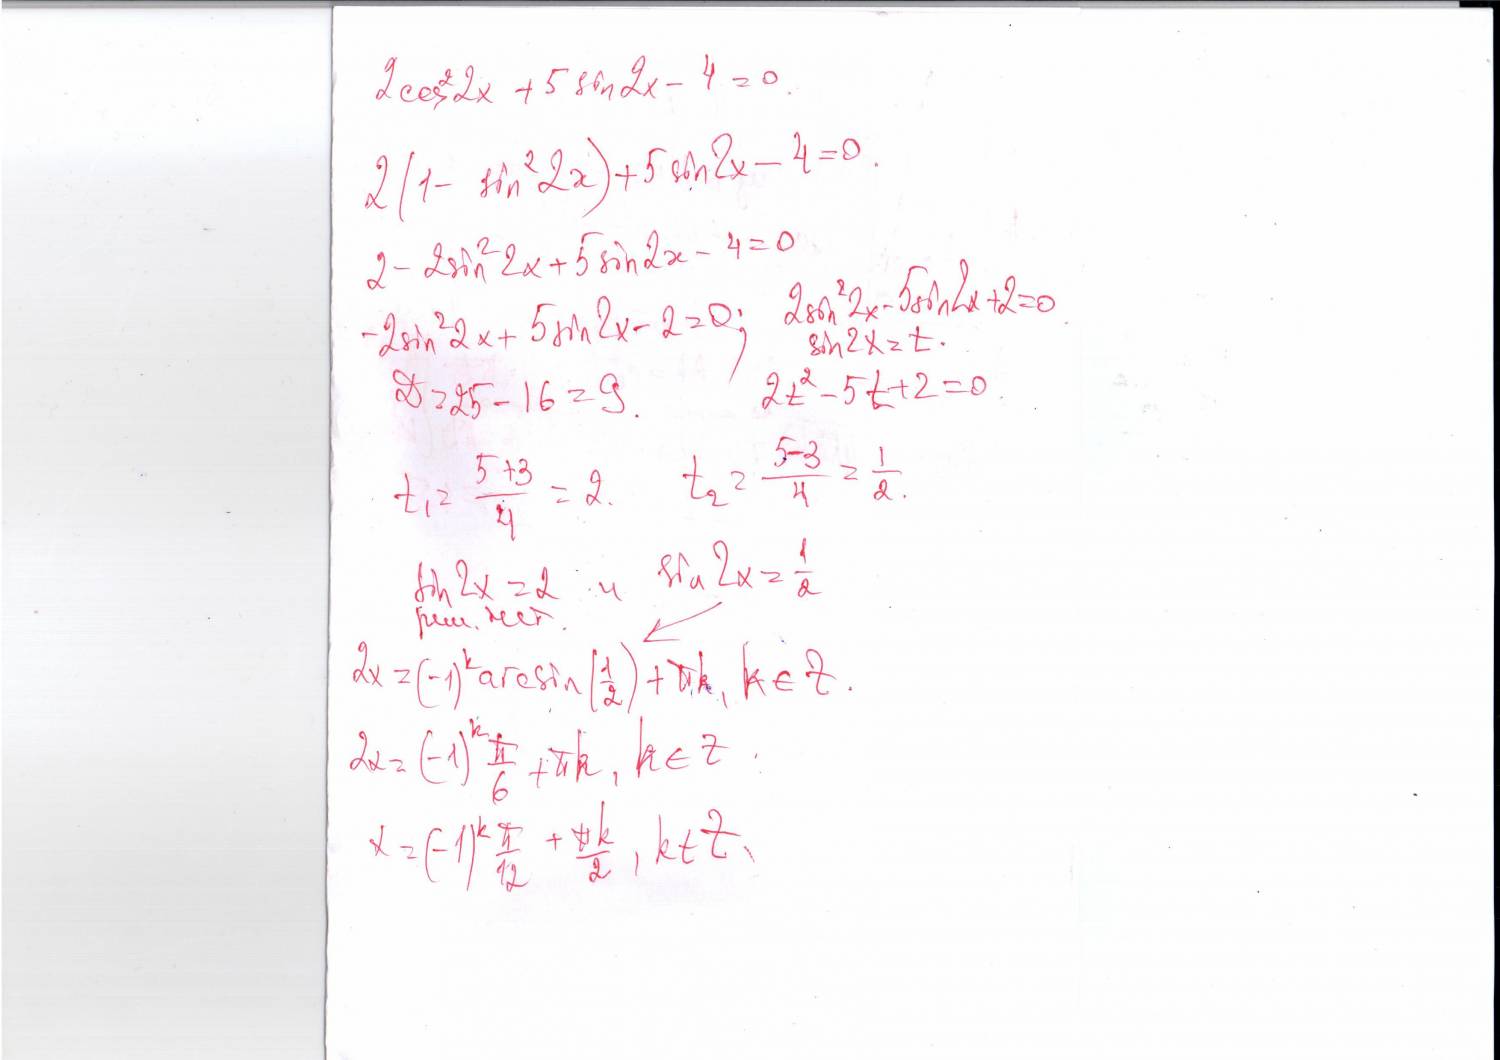 2cos²2x + 5sin2x - 4 = 0.
2(1 - sin²2x) + 5sin2x - 4 = 0.
2 - 2sin²2x + 5sin2x - 4 = 0
-2sin²2x + 5sin2x - 2 = 0; 2sin²2x - 5sin2x + 2 = 0.
sin2x = t.
D = 25 - 16 = 9. 2t² - 5t + 2 = 0.
t₁ = (5+3)/4 = 2. t₂ = (5-3)/4 = 1/2.
sin2x = 2 и sin2x = 1/2
реш. нет.
2x = (-1)^k arcsin(1/2) + πk, k ∈ Z.
2x = (-1)^k π/6 + πk, k ∈ Z.
x = (-1)^k π/12 + πk/2, k ∈ Z.